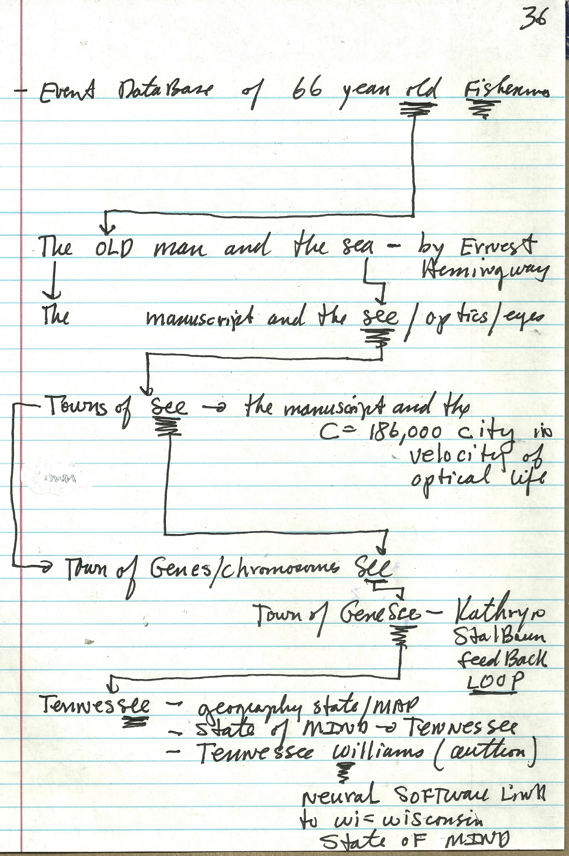 36
- Event DataBase of 66 year old Fisherma
The OLD man and the sea - by Ernest
Hemingway
The manuscript and the see / optics/eyes
Towns of See → the manuscript and the
C = 186,000 city in
velocity of
optical life
→ Town of Genes/chromosomes See
Town of GeneSee - Kathryn
StalBaum
feedBack
LOOP
Tennessee - geography state/MAP
- State of MIND → Tennessee
- Tennessee Williams (author)
Neural SOFTware Link
to wi = wisconsin
State OF MIND